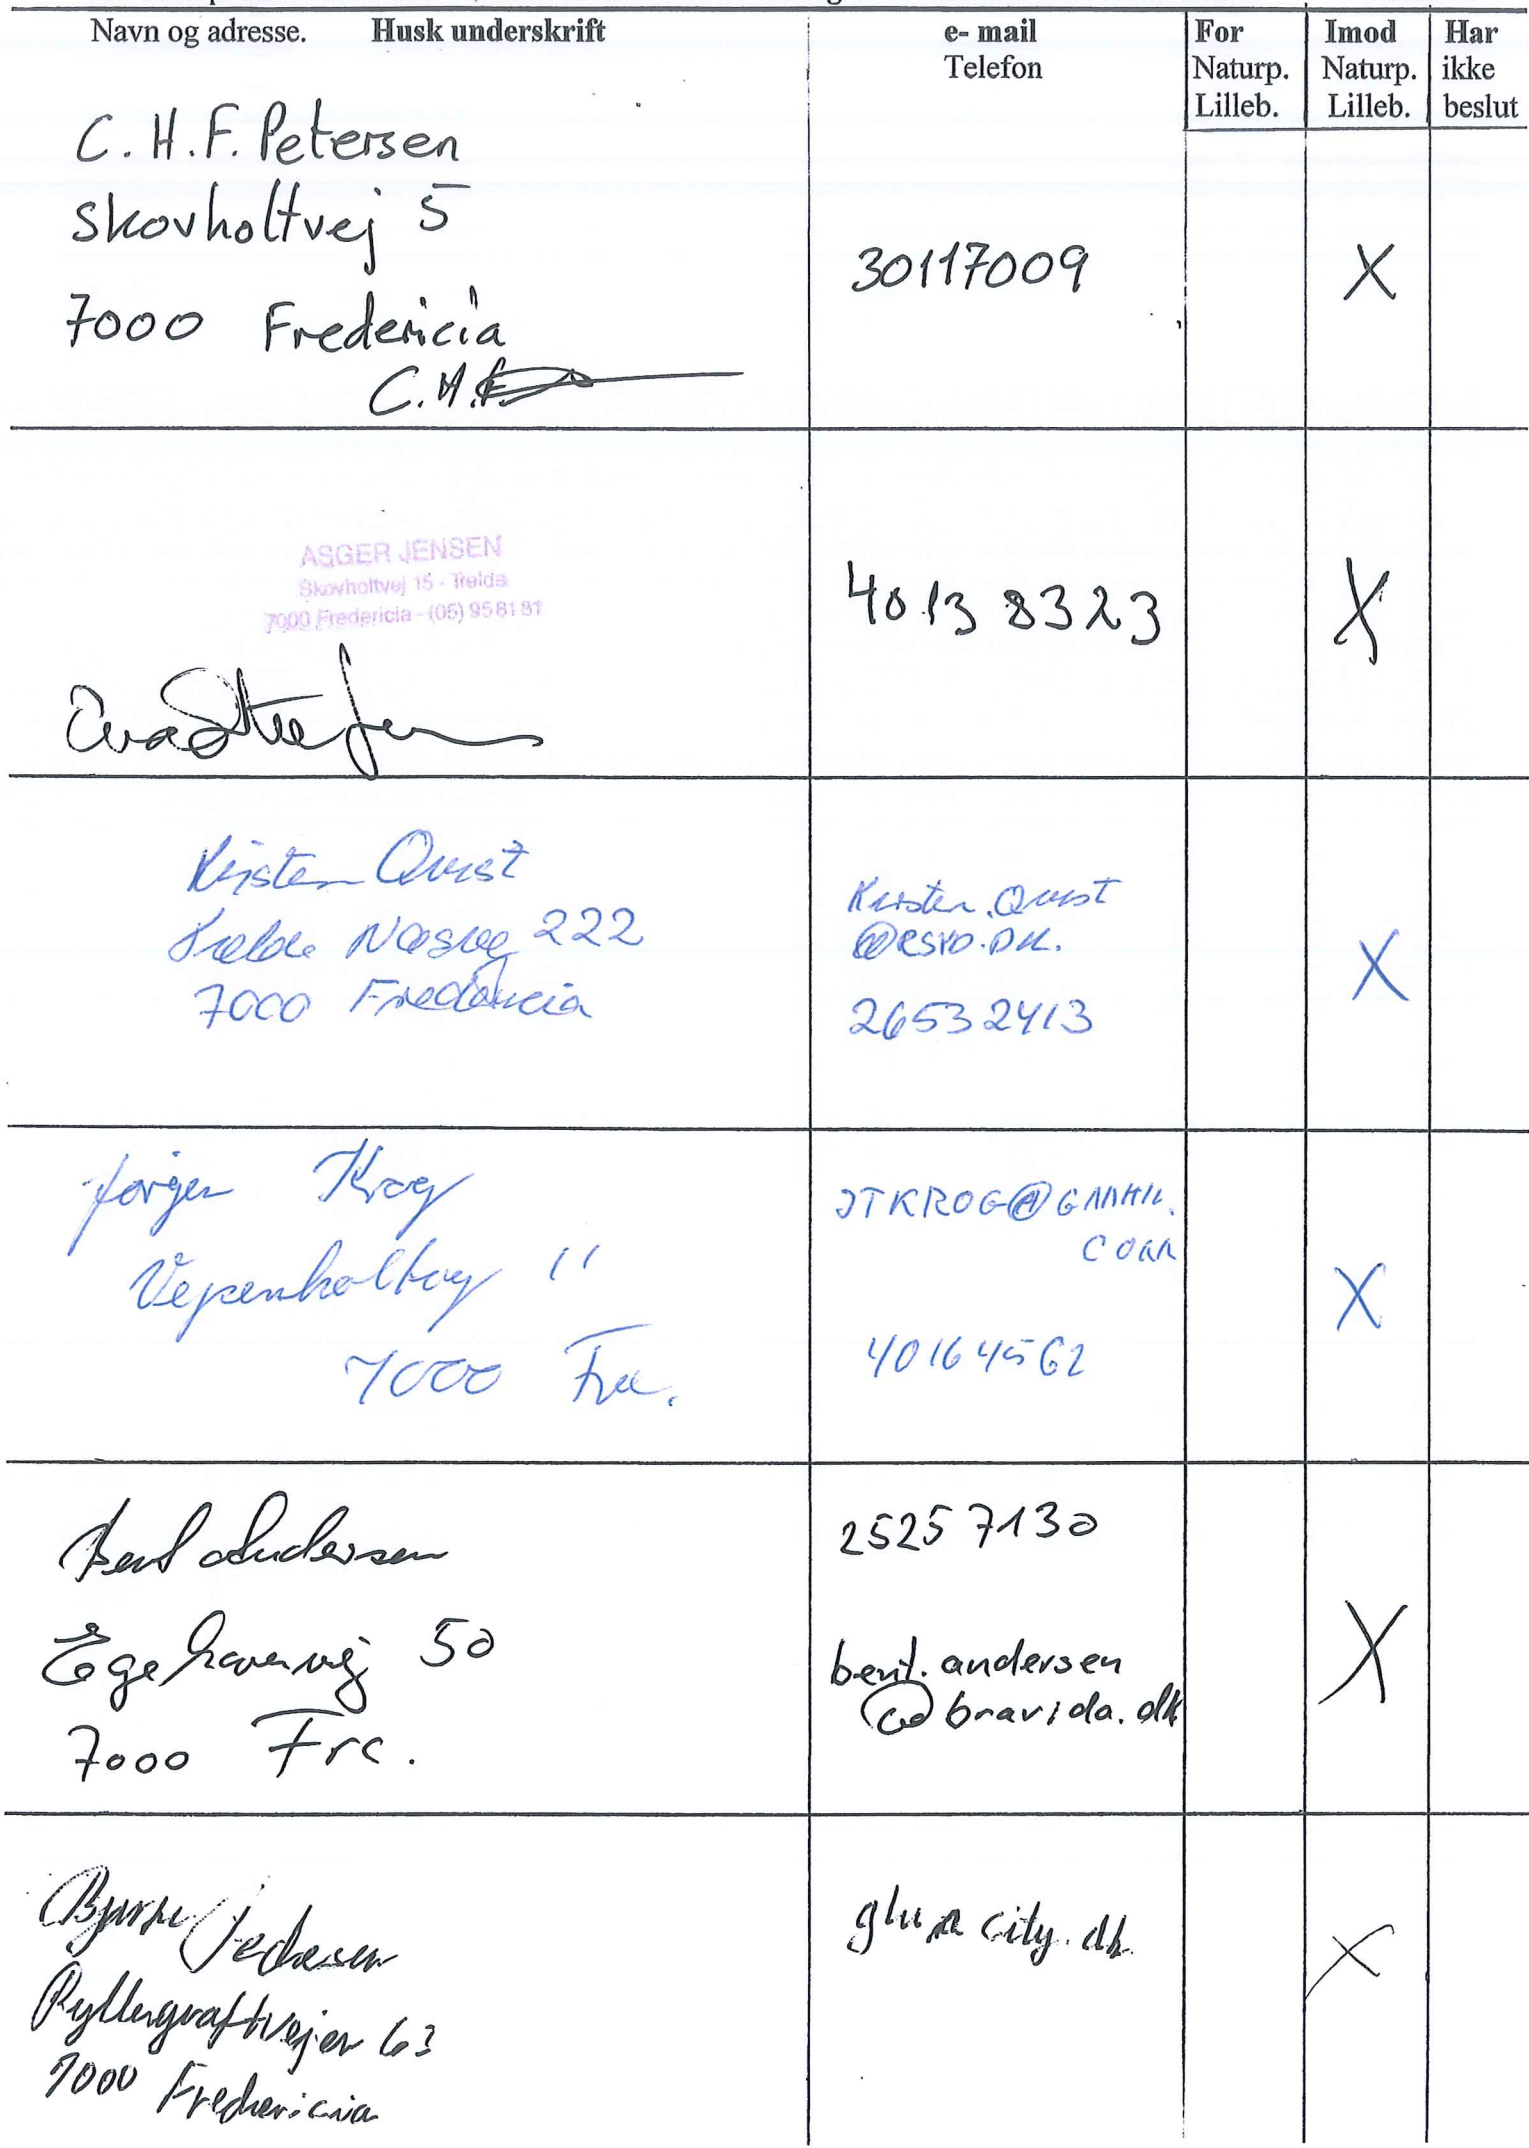 Navn og adresse. Husk underskrift
e- mail
Telefon
For
Naturp.
Lilleb.
Imod
Naturp.
Lilleb.
Har
ikke
beslut
C. H. F. Petersen
Skovholtvej 5
7000 Fredericia
C.H.F.
30117009
X
ASGER JENSEN
Skovholtvej 15 - Trelde
7000 Fredericia - (05) 95 81 81
4013 8323
X
Kirsten Qvist
Trelde Næsvej 222
7000 Fredericia
Kirsten.Qvist
@RSYD.DK.
26532413
X
Jørgen Krog
11
7000 Fre.
JTKROG@GMAIL.
COM
40164562
X
Bent Andersen
Egehavevej 50
7000 Frc.
25257130
bent.andersen
@bravida.dk
X
Bjarne Pedersen
63
7000 Fredericia
city.dk
X